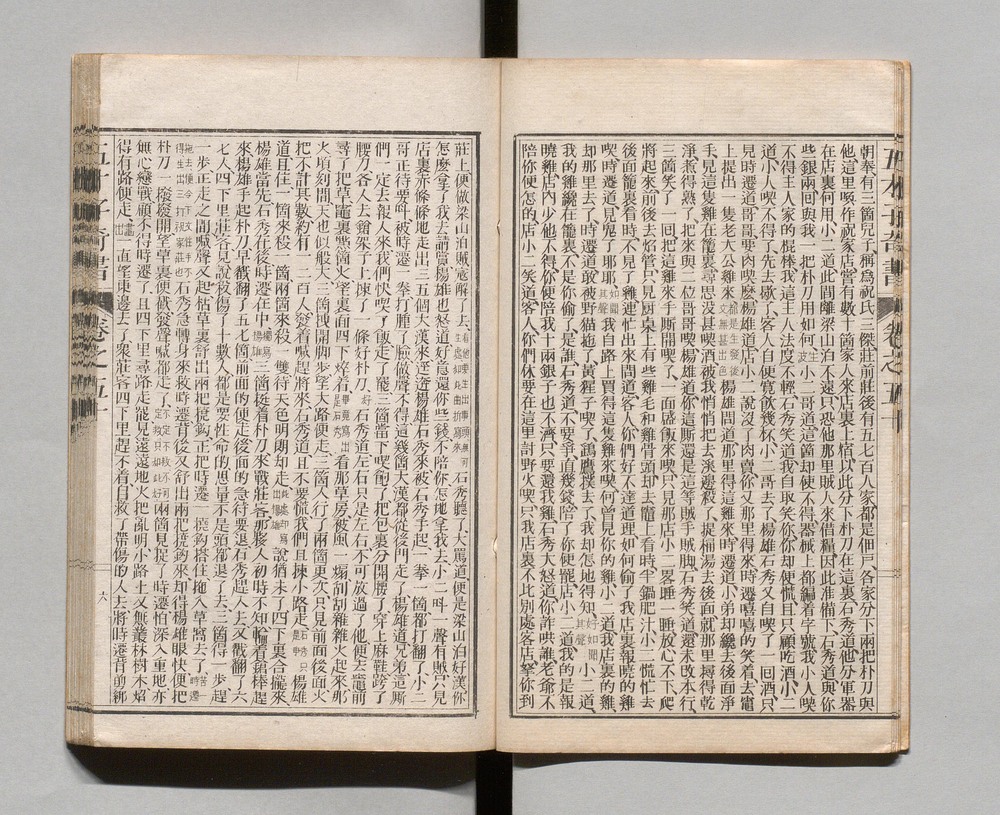 五才子奇書 卷之五十
朝奉有三箇兒子稱爲祝氏三傑莊前莊後有五七百人家都是佃戸各家分下兩把朴刀與
他這里喚作祝家店當有數十箇家人來店裏上宿以此分下朴刀在這裏石秀道他分軍器
在店裏何用小二道此間離梁山泊不遠只恐他那里賊人來借糧因此准備下石秀道與你
些銀兩回與我一把朴刀用如何小二哥道這箇却使不得器械上都編着字號我小人喫
不得主人家的棍棒我這主人法度不輕石秀笑道我自取笑你你却便慌且只顧吃酒小二
道小人喫不得了先去歇了客人自便寬飲幾杯小二哥去了楊雄石秀又自喫了一回酒只
見時遷道哥哥要肉喫麽楊雄道店小二說沒了肉賣你又那里得來時遷嘻嘻的笑着去竈
上提出一隻老大公雞來楊雄問道那里得這雞來時遷道小弟却纔去後面淨
手見這隻雞在籠裏尋思沒甚喫酒被我悄悄把去溪邊殺了提桶湯去後面就那里撏得乾
淨煮得熟了把來與二位哥哥喫楊雄道你這厮還是這等賊手賊脚石秀笑道還未改本行
三箇笑了一回把這雞來手撕開喫了一面盛飯來喫只見那店小二畧睡一睡放心不下爬
將起來前後去炤管只見厨桌上有些雞毛和雞骨頭却去竈上看時半鍋肥汁小二慌忙去
後面籠裏看時不見了雞連忙出來問道客人你們好不達道理如何偷了我店裏報曉的雞
喫時遷道見鬼了耶耶我自路上買得這隻雞來喫何曾見你的雞小二道我店裏的雞
却那里去了時遷道敢被野猫拖了黃猩子喫了鷂鷹撲去了我却怎地得知小二道
我的雞纔在籠裏不是你偷了是誰石秀道不要爭直幾錢陪了你便罷店小二道我的是報
曉雞店內少他不得你便陪我十兩銀子也不濟只要還我雞石秀大怒道你詐哄誰老爺不
陪你便怎的店小二笑道客人你們休要在這里討野火喫只我店裏不比別處客店拏你到
莊上便做梁山泊賊寇解了去石秀聽了大罵道便是梁山泊好漢你
怎麽拏了我去請賞楊雄也怒道好意還你些錢不陪你怎地拏我去小二呌一聲有賊只見
店裏赤條條地走出三五個大漢來逕迩楊雄石秀來被石秀手起一拳一箇都打翻了小二
哥正待要呌被時遷一拳打腫了臉做聲不得這幾箇大漢都從後門走了楊雄道兄弟這厮
們一定去報人來我們快喫了飯走了罷三箇當下喫飽了把包裹分開腰了穿上麻鞋跨了
腰刀各人去鎗架子上揀了一條好朴刀石秀道左右只是左右不可放過了他便去竈前
尋了把草竈裏㸃箇火望裏面四下焠着看那草房被風一煽刮刮雜雜火起來那
火頃刻間天也似般大三箇拽開脚步望大路便走三箇人行了兩箇更次只見前面後面火
把不計其數約有一二百人發着喊趕將來石秀道且不要慌我們且揀小路走楊雄
道且住一箇來殺一箇兩箇來殺一雙待天色明朗却走說猶未了四下裏合攏來
楊雄當先石秀在後時遷在中三箇挺着朴刀來戰莊客那夥人初時不知輪着鎗棒趕
來楊雄手起朴刀早戳翻了五七箇前面的便走後面的急待要退石秀趕入去又戳翻了六
七人四下里莊客見說殺傷了十數人都是要性命的思量不是頭都退了去三箇得一步趕
一步正走之間喊聲又起枯草裏舒出兩把撓鈎正把時遷一撓鈎搭住拖入草窩去了
石秀急轉身來救時遷背後又舒出兩把撓鈎來却得楊雄眼快便把
朴刀一撥撥開望草裏便戳發聲喊都走了兩箇見捉了時遷怕深入重地亦
無心戀戰顧不得時遷了且四下里尋路走罷見遠遠地火把亂明小路上又無叢林樹木炤
得有路便走一直望東邊去了衆莊客四下里趕不着自救了帶傷的人去將時遷背剪綁
五才子奇書 卷之五十
六